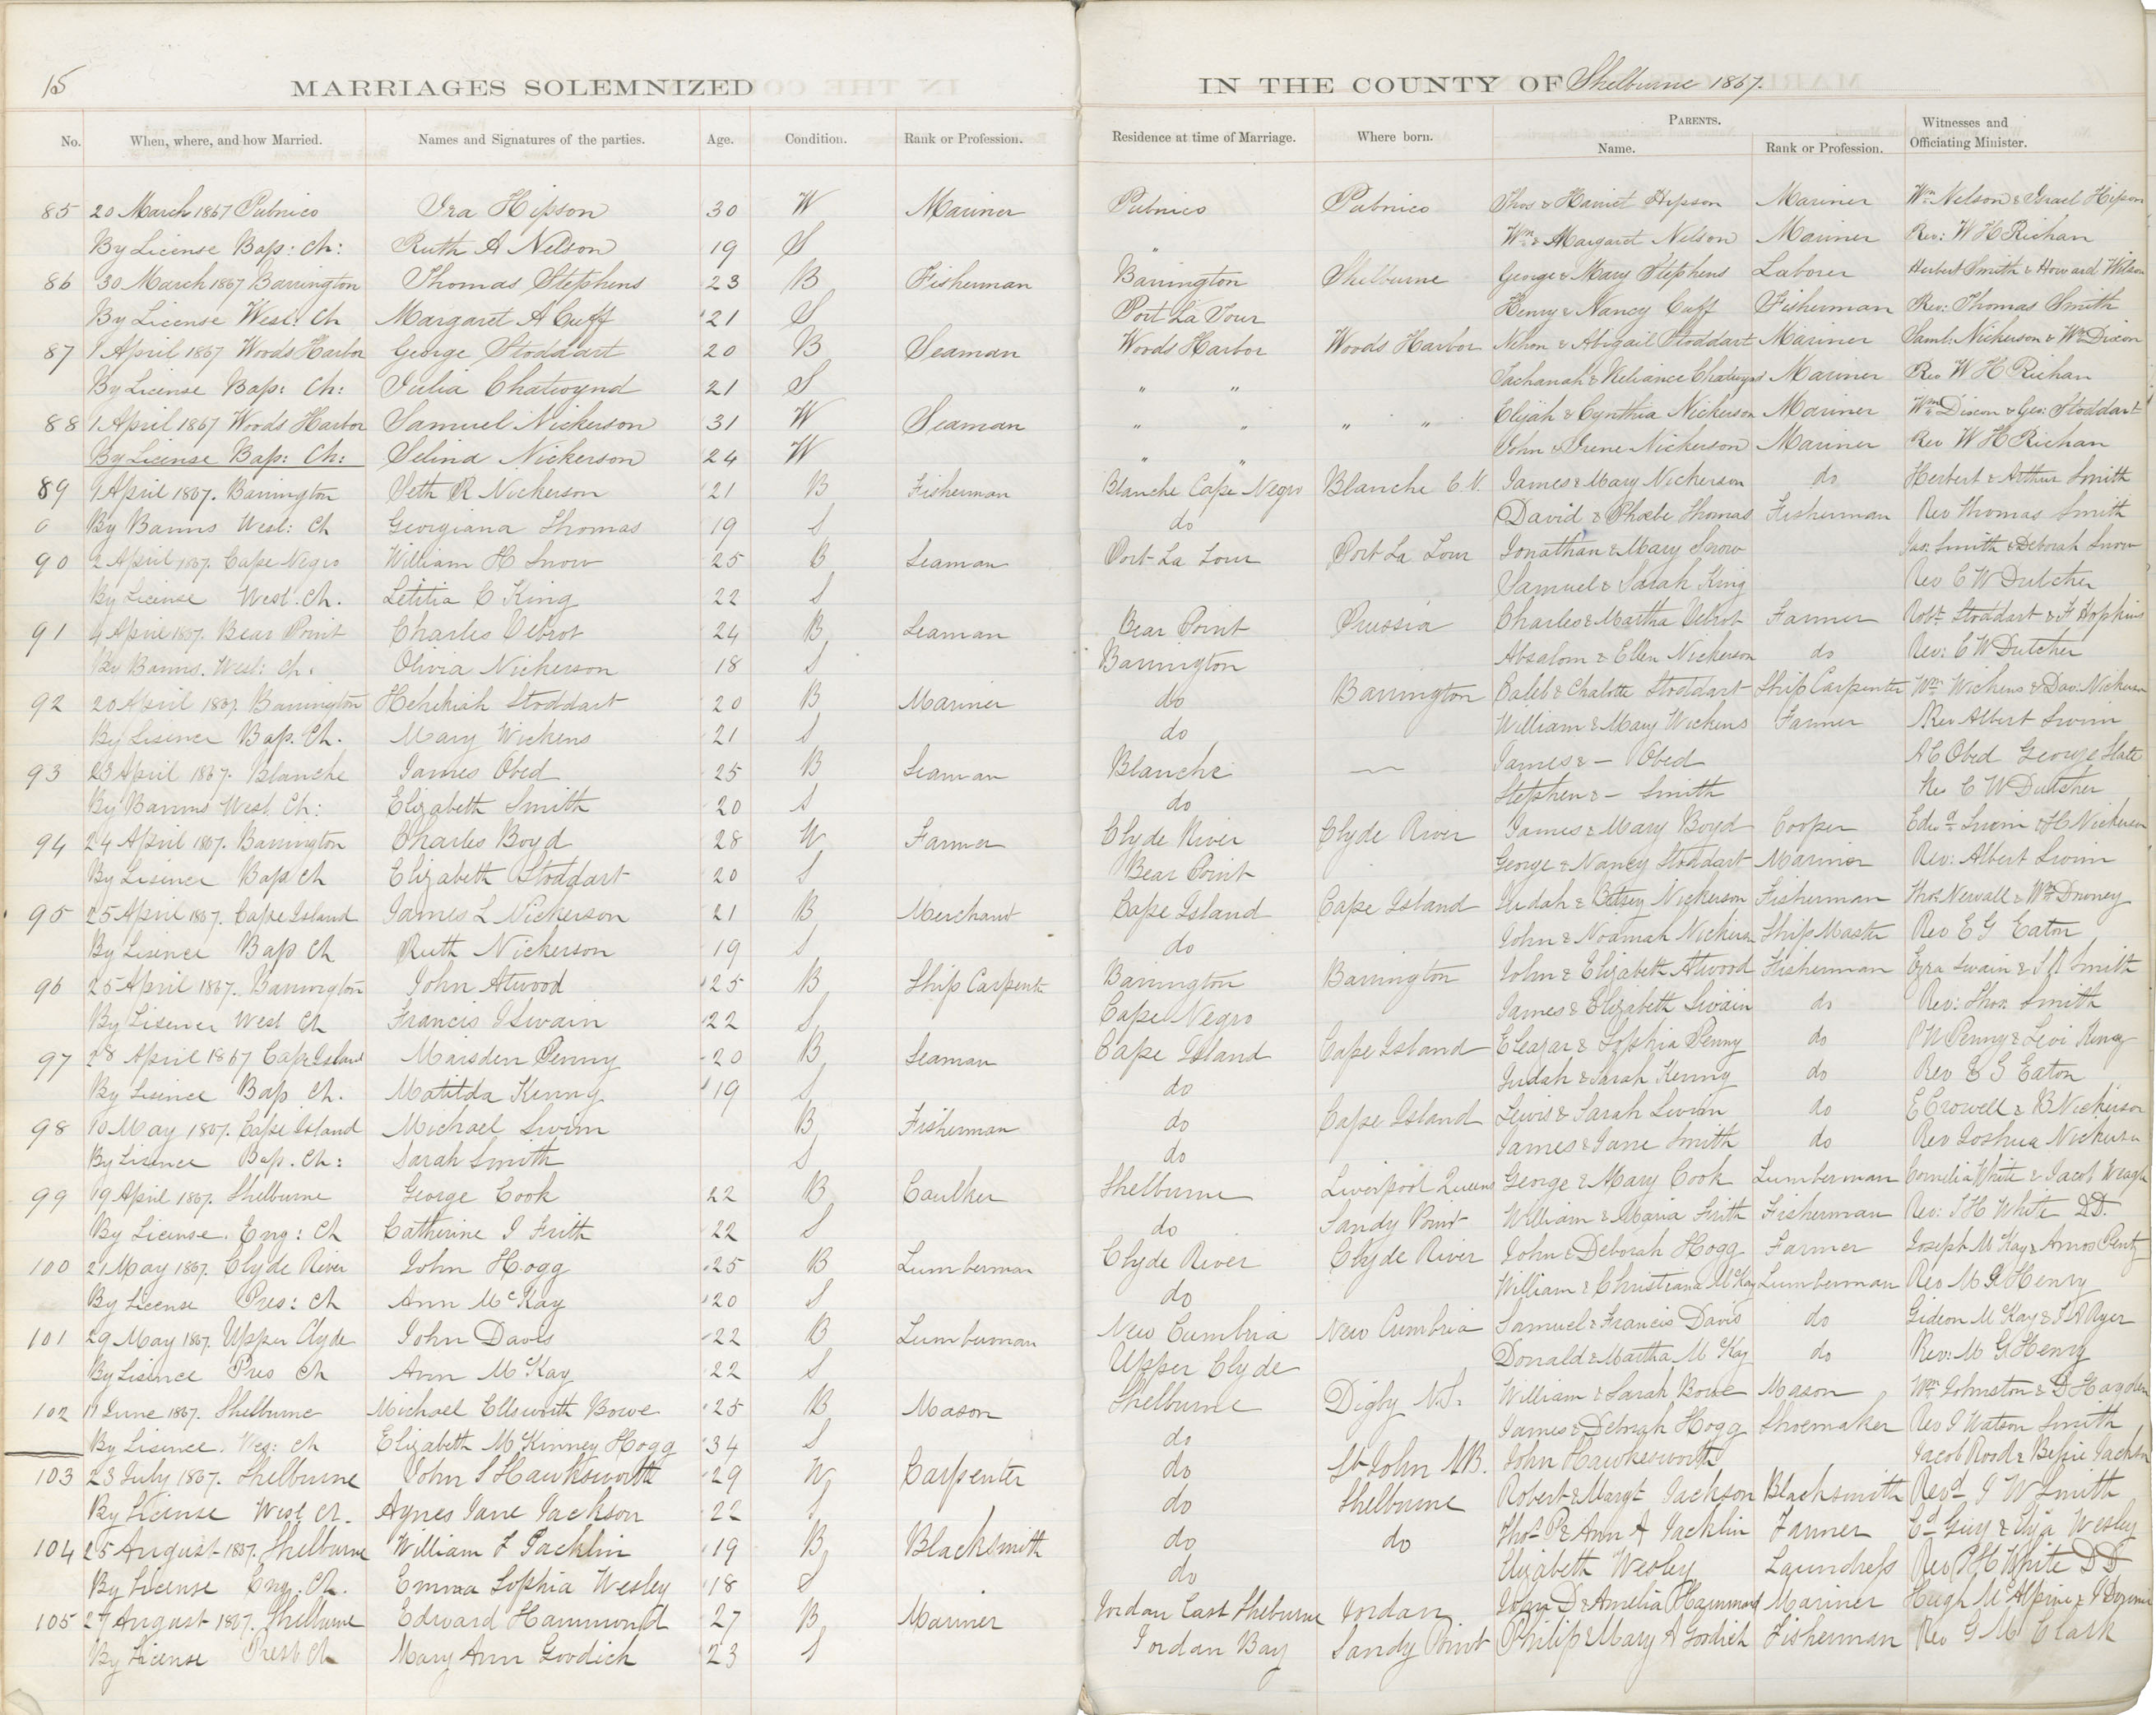 15
MARRIAGES SOLEMNIZED IN THE COUNTY OF Shelburne 1867.
No. When, where, and how Married. Names and Signatures of the parties. Age. Condition. Rank or Profession. Residence at time of Marriage. Where born. PARENTS. Name. Rank or Profession. Witnesses and Officiating Minister.
85 20 March 1867 Pubnico Ira Hipson 30 W Mariner Pubnico Pubnico Thos & Harriet Hipson Mariner Wm Nelson & Israel Hipson
By License Bap: Ch: Ruth A Nelson 19 S " Wm & Margaret Nelson Mariner Rev: W H Richan
86 30 March 1867 Barrington Thomas Stephens 23 B Fisherman Barrington Shelburne George & Mary Stephens Laborer Herbert Smith & Howard Wilson
By License Wesl: Ch Margaret A Cuff 21 S Port La Tour Henry & Nancy Cuff Fisherman Rev: Thomas Smith
87 1 April 1867 Woods Harbor George Stoddart 20 B Seaman Woods Harbor Woods Harbor & Abigail Stoddart Mariner Saml: Nickerson & Wm Dixon
By License Bap: Ch: Julia Chatwynd 21 S " " & Reliance Chatwynd Mariner Rev W H Richan
88 1 April 1867 Woods Harbor Samuel Nickerson 31 W Seaman " " " " Elijah & Cynthia Nickerson Mariner Wm Dixon & Geo: Stoddart
By License Bap: Ch: Selina Nickerson 24 W " " John & Irene Nickerson Mariner Rev W H Richan
89 9 April 1867. Barrington Seth R Nickerson 21 B Fisherman Blanche Cape Negro Blanche C. N. James & Mary Nickerson do Herbert & Arthur Smith
By Banns Wesl: Ch Georgiana Thomas 19 S do David & Phoebe Thomas Fisherman Rev Thomas Smith
90 2 April 1867. Cape Negro William H Snow 25 B Seaman Port La Tour Port La Tour Jonathan & Mary Snow Jas. Smith & Deborah Snow
By License Wesl. Ch. Letitia C King 22 S Samuel & Sarah King Rev C W Dutcher
91 4 April 1867. Bear Point Charles Vebrot 24 B Seaman Bear Point Prussia Charles & Martha Vebrot Farmer Robt Stoddart & F Hopkins
By Banns. Wesl: Ch. Olivia Nickerson 18 S Barrington Absalom & Ellen Nickerson do Rev: C W Dutcher
92 20 April 1867. Barrington Hehekiah Stoddart 20 B Mariner do Barrington Caleb & Chalotte Stoddart Ship Carpenter Wm Wickens & Dav: Nickerson
By Lisence Bap. Ch. Mary Wickens 21 S do William & Mary Wickens Farmer Rev Albert Swim
93 23 April 1867. Blanche James Obed 25 B Seaman Blanche — James & — Obed A C Obed George
By Banns Wesl. Ch: Elizabeth Smith 20 S do Stephen & — Smith Rev C W Dutcher
94 24 April 1867. Barrington Charles Boyd 28 W Farmer Clyde River Clyde River James & Mary Boyd Cooper Edwd Swim & H Nickerson
By Lisence Bap Ch Elizabeth Stoddart 20 S Bear Point George & Nancy Stoddart Mariner Rev: Albert Swim
95 25 April 1867. Cape Island James L Nickerson 21 B Merchant Cape Island Cape Island Judah & Betsey Nickerson Fisherman Thos. Newall & Wm
By Lisence Bap Ch Ruth Nickerson 19 S do John & Noamah Nickerson Ship Master Rev E G Eaton
96 25 April 1867. Barrington John Atwood 25 B Ship Carpenter Barrington Barrington John & Elizabeth Atwood Fisherman Ezra Swain & Smith
By Lisence Wesl Ch Francis J Swain 22 S Cape Negro James & Elizabeth Swain do Rev: Thos. Smith
97 28 April 1867 Cape Island Marsden Penny 20 B Seaman Cape Island Cape Island Eleazar & Sophia Penny do P N Penny & Levi Kenny
By Lisence Bap Ch. Matilda Kenny 19 S do Judah & Sarah Kenny do Rev E G Eaton
98 10 May 1867. Cape Island Michael Swim B Fisherman do Cape Island Lewis & Sarah Swim do E Crowell & B Nickerson
By Lisence Bap. Ch: Sarah Smith S do James & Jane Smith do Rev Joshua Nickerson
99 19 April 1867. Shelburne George Cook 22 B Caulker Shelburne Liverpool Queens George & Mary Cook Lumberman Cornelia White & Jacob
By License. Eng: Ch Catherine J Frith 22 S do Sandy Point William & Maria Frith Fisherman Rev: T H White DD.
100 21 May 1867. Clyde River John Hogg 25 B Lumberman Clyde River Clyde River John & Deborah Hogg Farmer Joseph McKay & Amos Pentz
By License Pres: Ch Ann McKay 20 S do William & Christiana McKay Lumberman Rev M G Henry
101 29 May 1867. Upper Clyde John Davis 22 B Lumberman New Cumbria New Cumbria Samuel & Francis Davis do Gideon McKay & Ryer
By Lisence Pres Ch Ann McKay 22 S Upper Clyde Donald & Martha McKay do Rev: M G Henry
102 11 June 1867. Shelburne Michael Ellsworth Bowe 25 B Mason Shelburne Digby N.S. William & Sarah Bowe Mason Wm Johnston & D Hagden
By Lisence. Wes: Ch Elizabeth McKinney Hogg 34 S do James & Deborah Hogg Shoemaker Rev J Watson Smith
103 23 July 1867. Shelburne John S Hawksworth 29 W Carpenter do St John N.B. John Hawkesworth Jacob Rood & Bessie Jackson
By License Wesl Ch. Agnes Jane Jackson 22 S do Shelburne Robert & Margt Jackson Blacksmith Revd J W Smith
104 25 August 1867. Shelburne William F Jacklin 19 B Blacksmith do do Thos P & Ann A Jacklin Farmer Guy & Wesley
By License Eng. Ch. Emma Sophia Wesley 18 S do Elizabeth Wesley Laundress Rev T H White DD
105 27 August 1867. Shelburne Edward Hammond 27 B Mariner Jordan East Shelburne Jordan John D & Amelia P Hammond Mariner Hugh McAlpine &
By License Presb Ch Mary Ann Goodich 23 S Jordan Bay Sandy Point Philip & Mary A Goodich Fisherman Rev G M Clark